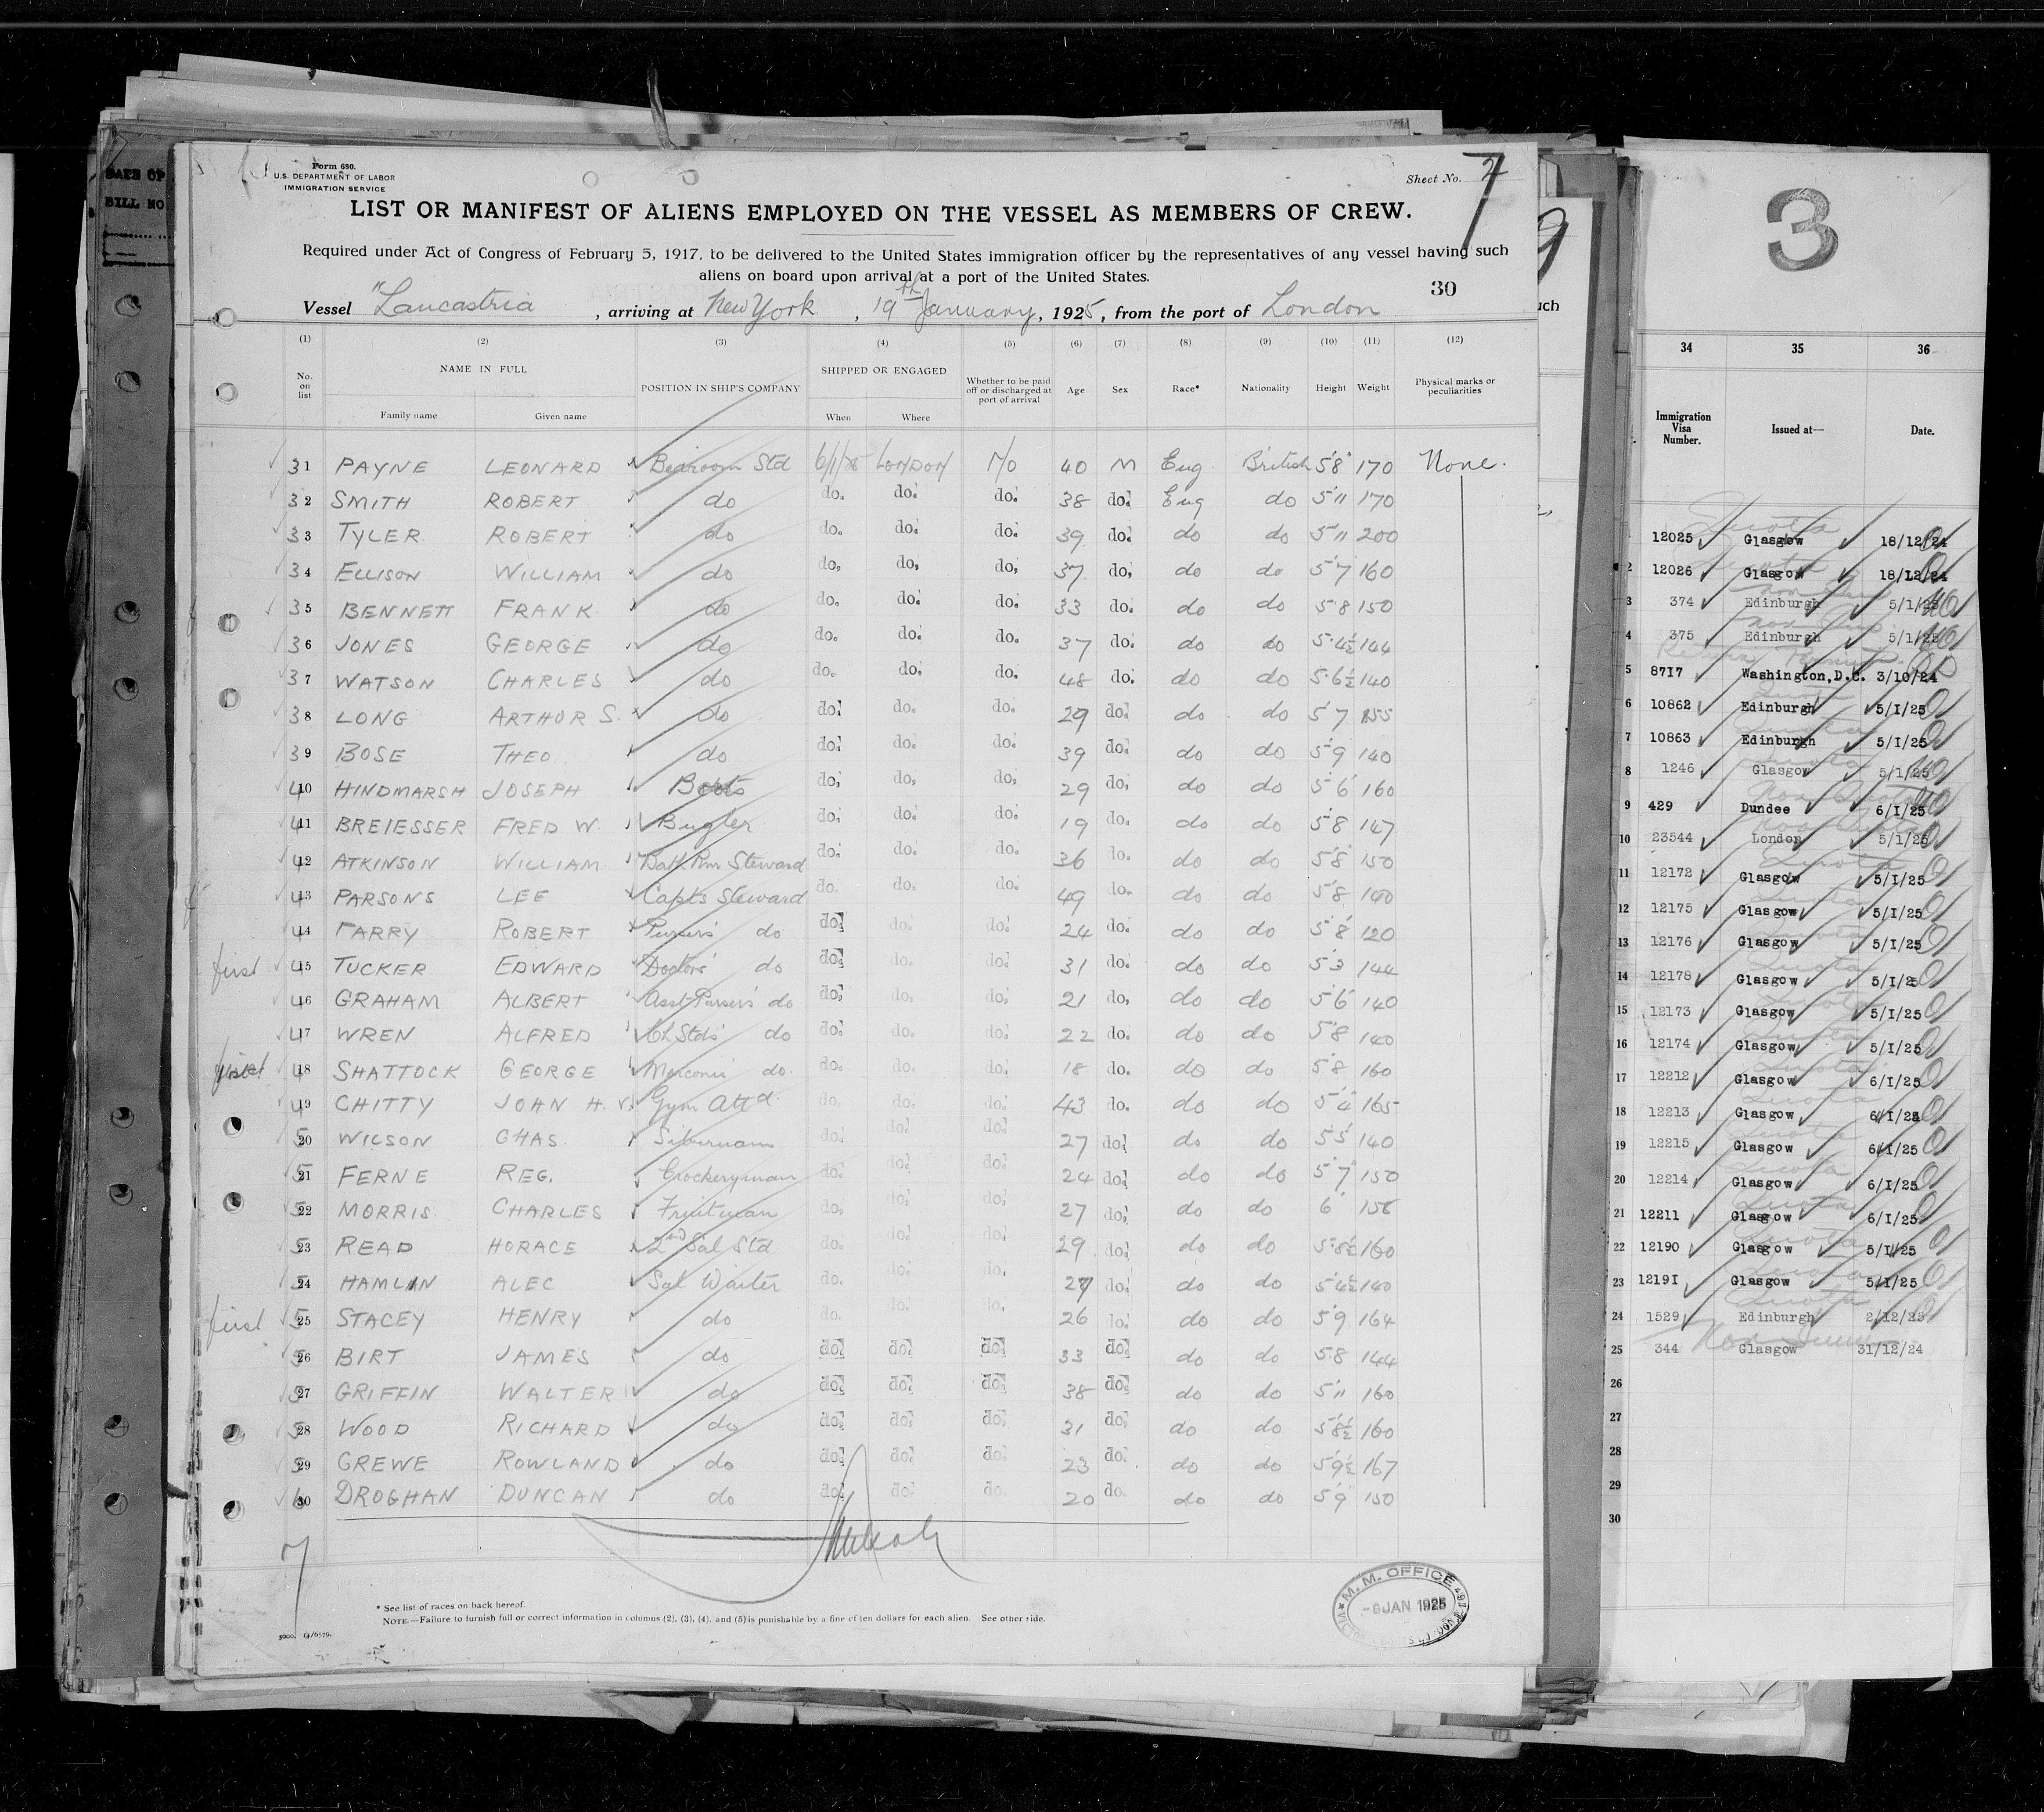 DATE OF
BILL NO
Form 680.
U.S. DEPARTMENT OF LABOR
IMMIGRATION SERVICE
Sheet No. 2
7
LIST OR MANIFEST OF ALIENS EMPLOYED ON THE VESSEL AS MEMBERS OF CREW.
Required under Act of Congress of February 5, 1917, to be delivered to the United States immigration officer by the representatives of any vessel having such
aliens on board upon arrival at a port of the United States.
30
Vessel "Lancastria , arriving at New York , 19th January, 1925, from the port of London
(1) (2) (3) (4) (5) (6) (7) (8) (9) (10) (11) (12)
No. on list NAME IN FULL POSITION IN SHIP'S COMPANY SHIPPED OR ENGAGED Whether to be paid off or discharged at port of arrival Age Sex Race* Nationality Height Weight Physical marks or peculiarities
Family name Given name When Where
31 PAYNE LEONARD Bedroom Std 6/1/25 LONDON NO 40 M Eng British 5'8" 170 None.
32 SMITH ROBERT do do. do. do. 38 do. Eng do 5'11 170
33 TYLER ROBERT do do. do. do. 39 do. do do 5'11 200
34 ELLISON WILLIAM do do. do. do. 37 do. do do 5'7 160
35 BENNETT FRANK do do. do. do. 33 do. do do 5'8 150
36 JONES GEORGE do do. do. do. 37 do. do do 5'4½ 144
37 WATSON CHARLES do do. do. do. 48 do. do do 5'6½ 140
38 LONG ARTHUR S. do do. do. do. 29 do. do do 5'7 155
39 BOSE THEO do do. do. do. 39 do. do do 5'9 140
40 HINDMARSH JOSEPH Boots do. do. do. 29 do. do do 5'6 160
41 BREIESSER FRED W. Bugler do. do. do. 19 do. do do 5'8 147
42 ATKINSON WILLIAM Bath Rm Steward do. do. do. 36 do. do do 5'8 150
43 PARSONS LEE Capt's Steward do. do. do. 49 do. do do 5'8 140
44 FARRY ROBERT Purser's do do. do. do. 24 do. do do 5'8 120
first 45 TUCKER EDWARD Doctors' do do. do. do. 31 do. do do 5'3 144
46 GRAHAM ALBERT Asst Purser's do do. do. do. 21 do. do do 5'6 140
47 WREN ALFRED Ch Stds' do do. do. do. 22 do. do do 5'8 140
first 48 SHATTOCK GEORGE Marconi's do. do. do. do. 18 do. do do 5'8 160
49 CHITTY JOHN H. V. Gym Attd. do. do. do. 43 do. do do 5'4 165
50 WILSON CHAS. Silverman do. do. do. 27 do. do do 5'5 140
51 FERNE REG. Crockeryman do. do. do. 24 do. do do 5'7 150
52 MORRIS CHARLES Fruitman do. do. do. 27 do. do do 6' 158
53 READ HORACE 2nd Sal Std do. do. do. 29 do. do do 5'8½ 160
54 HAMLIN ALEC Sal Waiter do. do. do. 27 do. do do 5'4½ 140
first 55 STACEY HENRY do do. do. do. 26 do. do do 5'9 164
56 BIRT JAMES do do. do. do. 33 do. do do 5'8 144
57 GRIFFIN WALTER do do. do. do. 38 do. do do 5'11 160
58 WOOD RICHARD do do. do. do. 31 do. do do 5'8½ 160
59 GREWE ROWLAND do do. do. do. 23 do. do do 5'9½ 167
60 DROGHAN DUNCAN do do. do. do. 20 do. do do 5'9 150
7
* See list of races on back hereof.
NOTE.—Failure to furnish full or correct information in columns (2), (3), (4), and (5) is punishable by a fine of ten dollars for each alien. See other side.
M. M. OFFICE
-6 JAN 1925
9
uch
3
34 35 36
Immigration Visa Number. Issued at— Date.
12025 Glasgow 18/12/24
2 12026 Glasgow 18/12/24
3 374 Edinburgh 5/1/25
4 375 Edinburgh 5/1/25
5 8717 Washington, D.C. 3/10/24
6 10862 Edinburgh 5/1/25
7 10863 Edinburgh 5/1/25
8 1246 Glasgow 5/1/25
9 429 Dundee 6/1/25
10 23544 London 5/1/25
11 12172 Glasgow 5/1/25
12 12175 Glasgow 5/1/25
13 12176 Glasgow 5/1/25
14 12178 Glasgow 5/1/25
15 12173 Glasgow 5/1/25
16 12174 Glasgow 5/1/25
17 12212 Glasgow 6/1/25
18 12213 Glasgow 6/1/25
19 12215 Glasgow 6/1/25
20 12214 Glasgow 6/1/25
21 12211 Glasgow 6/1/25
22 12190 Glasgow 5/1/25
23 12191 Glasgow 5/1/25
24 1529 Edinburgh 2/12/25
25 344 Glasgow 31/12/24
26
27
28
29
30